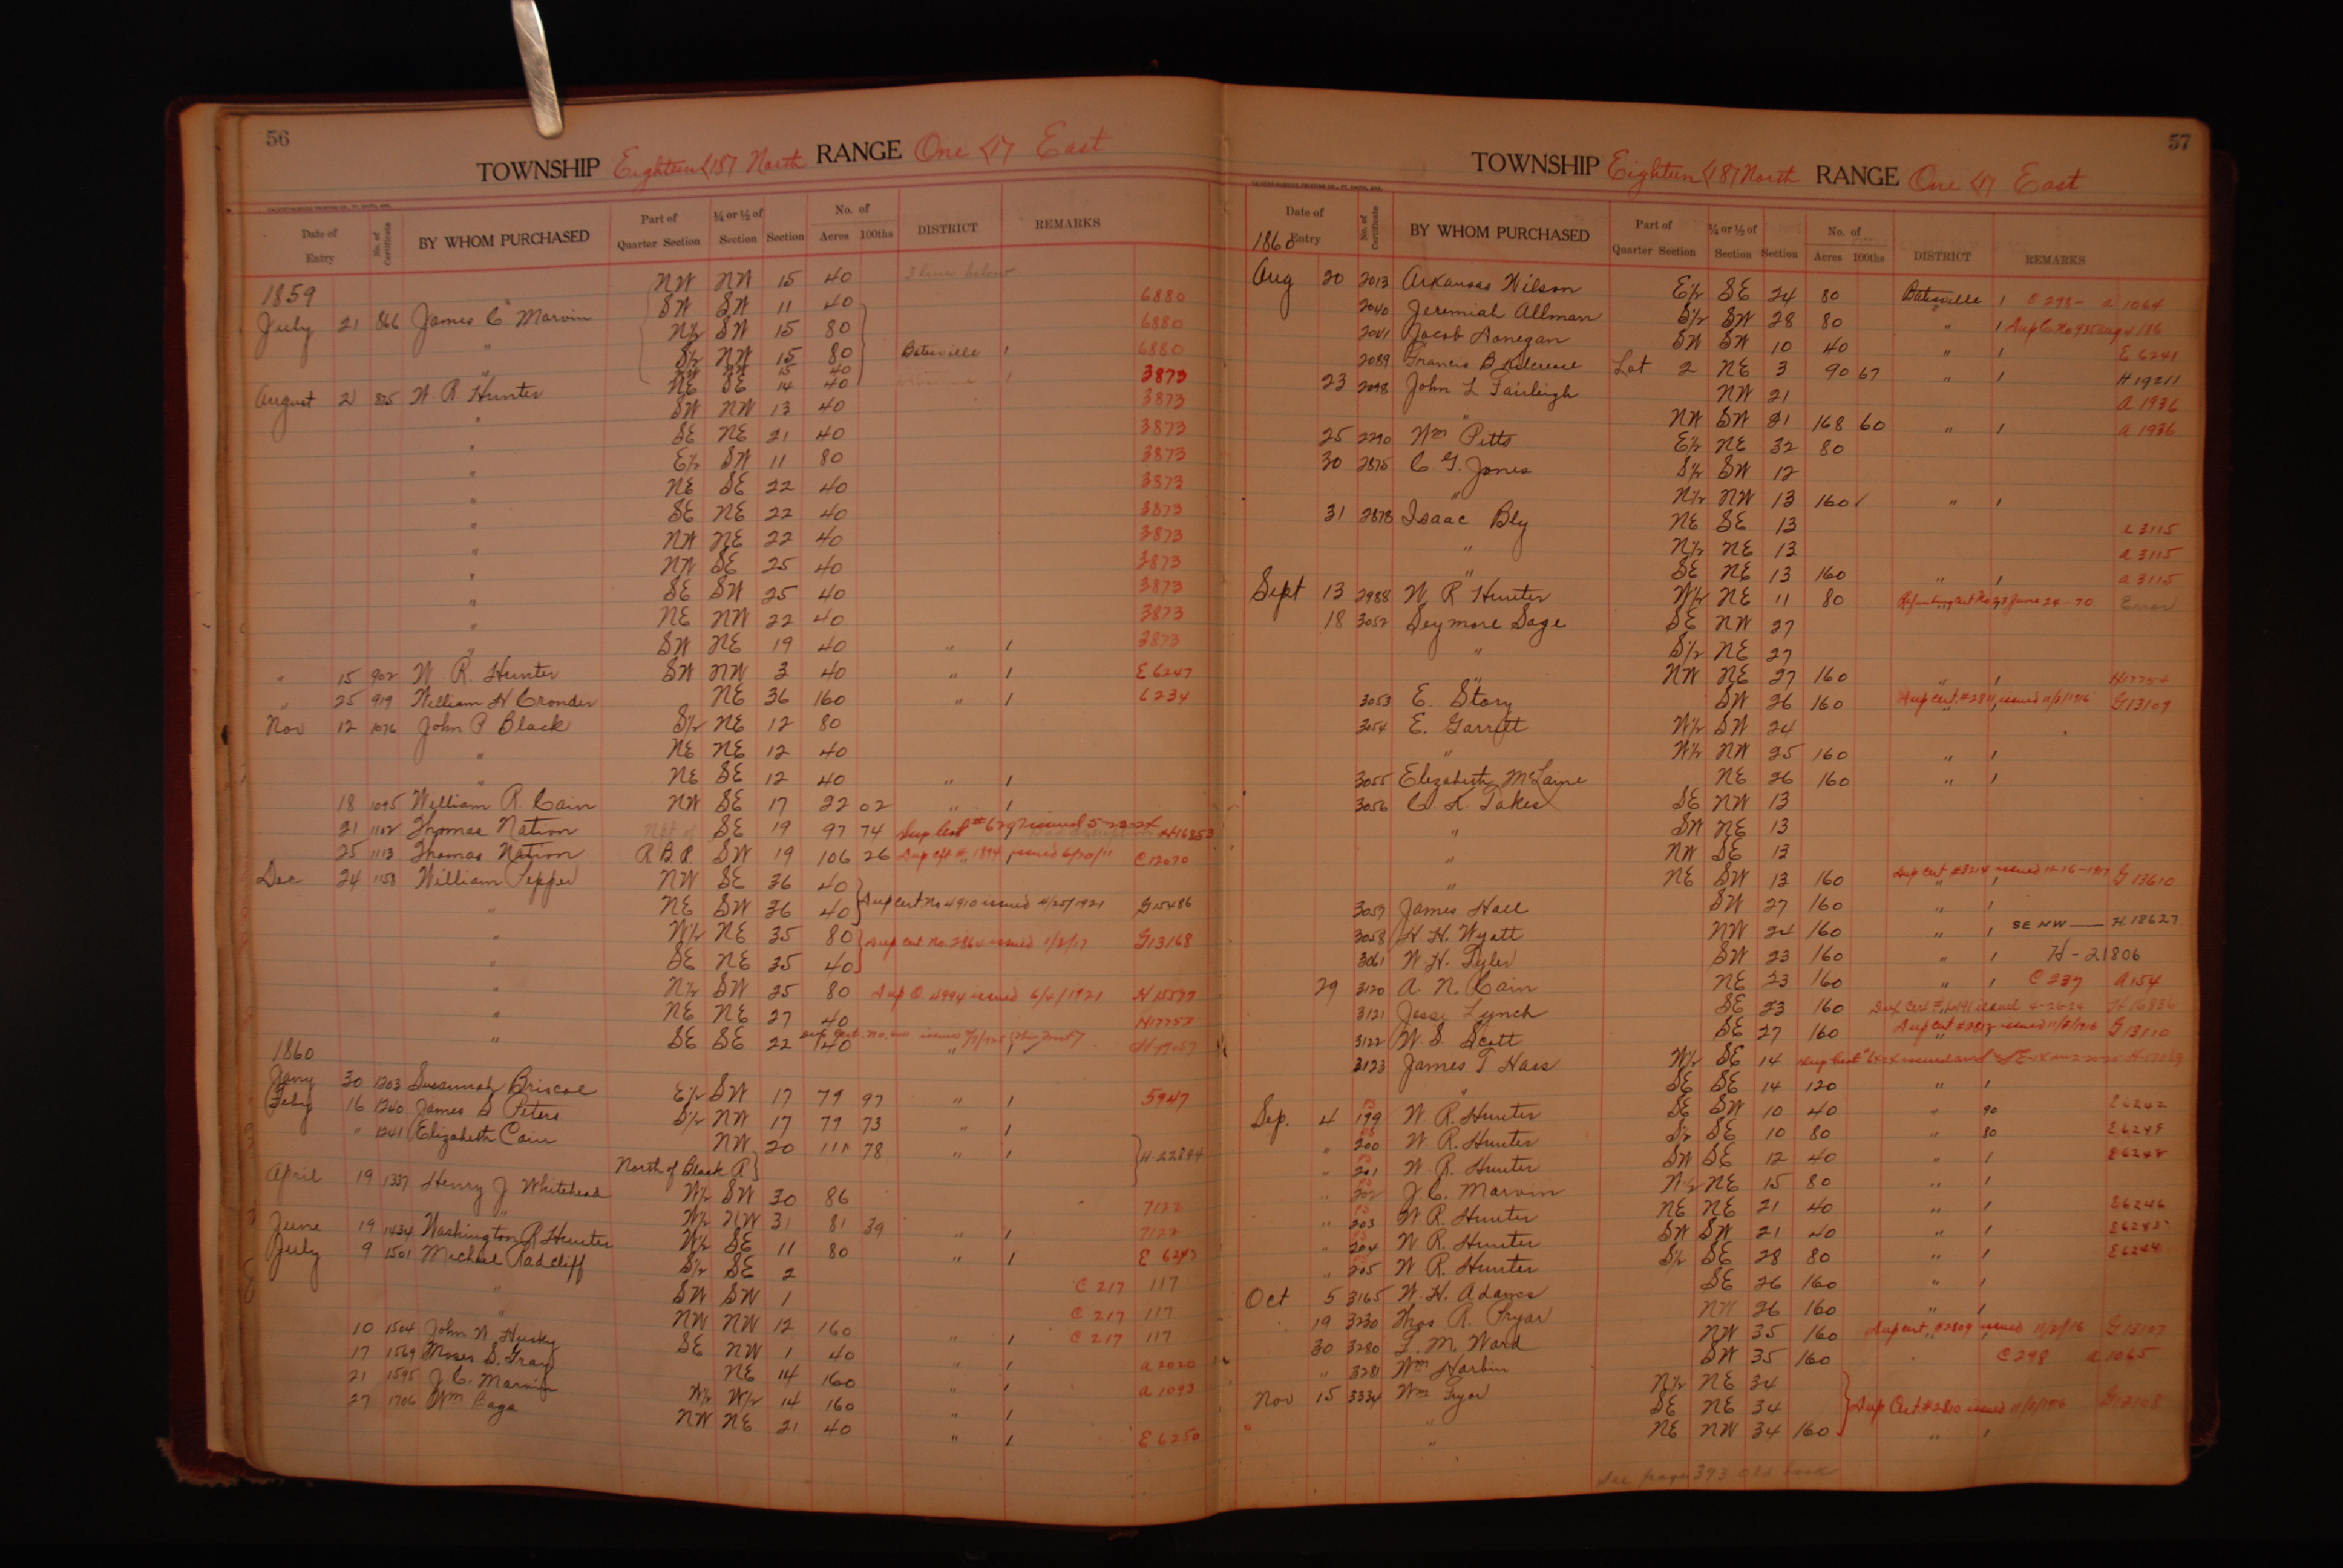 56
TOWNSHIP Eighteen (18) North RANGE One (1) East
Date of Entry No. of Certificate BY WHOM PURCHASED Part of Quarter Section ¼ or ½ of Section Section No. of Acres 100ths DISTRICT REMARKS
NW NW 15 40 3 lines below
1859 SW SW 11 40 6880
July 21 866 James C Marvin N½ SW 15 80 6880
" S½ NW 15 80 Batesville 1 6880
" NW NW 15 40
August 2 875 W. R. Hunter NE SE 14 40 1 3873
" SW NW 13 40 3873
" SE NE 21 40 3873
" E½ SW 11 80 3873
" NE SE 22 40 3873
" SE NE 22 40 3873
" NW NE 22 40 3873
" NW SE 25 40 3873
" SE SW 25 40 3873
" NE NW 22 40 3873
" SW NE 19 40 " 1 3873
" 15 902 W. R. Hunter SW NW 3 40 " 1 E 6247
" 25 919 William H Cronder NE 36 160 " 1 C 234
Nov 12 1076 John P Black S½ NE 12 80
" NE NE 12 40
" NE SE 12 40 " 1
18 1095 William R. Cain NW SE 17 22 02 " 1
21 1102 Thomas Nation Npt of SE 19 97 74 Dup Cert #6297 issued 5-23-24 H16853
25 1113 Thomas Nation R.B.R. SW 19 106 26 Dup cft #1894 issued 6/20/11 C12070
Dec 24 1158 William Pepper NW SE 36 40
" NE SW 36 40 Dup cert no 4910 issued 4/25/1921 G15486
" W½ NE 35 80 Dup cert no. 2864 issued 1/2/17 G13168
" SE NE 35 40
" N½ SW 25 80 Dup C. 4994 issued 6/4/1921 H 15537
" NE NE 27 40 H17757
" SE SE 22 40 " 1
1860
Jany 30 1203 Sussannah Briscoe E½ SW 17 79 97 " 1 5947
Feby 16 1240 James S Peters S½ NW 17 79 73 " 1
" 1241 Elizabeth Cain NW 20 111 78 " 1 H-22894
North of Black R
April 19 1337 Henry J Whitehead W½ SW 30 86 7122
" W½ NW 31 81 39 " 1 7122
June 19 1434 Washington R Hunter W½ SE 11 80 " 1 E 6243
July 9 1501 Michael Radcliff S½ SE 2 C 217 117
" SW SW 1 C 217 117
" NW NW 12 160 " 1 C 217 117
10 1504 John W Husky SE NW 1 40 " 1 A 2020
17 1569 Moses S. Gray NE 14 160 " 1 A 1093
21 1595 J. C. Marvin W½ W½ 14 160 " 1
27 1706 Wm Eaga NW NE 21 40 " 1 E 6250
57
TOWNSHIP Eighteen (18) North RANGE One (1) East
Date of Entry No. of Certificate BY WHOM PURCHASED Part of Quarter Section ¼ or ½ of Section Section No. of Acres 100ths DISTRICT REMARKS
1860
Aug 20 2013 Arkansas Wilson E½ SE 24 80 Batesville 1 C 298- A 1064
2040 Jeremiah Allman S½ SW 28 80 " 1
2041 Jacob Donegan SW SW 10 40 " 1 E 6241
2089 Francis B Kilcrease Lot 2 NE 3 90 67 " 1 H 19211
23 2098 John L Fairleigh NW 21 A 1936
" NW SW 21 168 60 " 1 A 1936
25 2290 Wm Pitts E½ NE 32 80
30 2875 C. G. Jones S½ SW 12
" N½ NW 13 160 " 1
31 2878 Isaac Bly NE SE 13 A 3115
" N½ NE 13 A 3115
" SE NE 13 160 " 1 A 3115
Sept 13 2988 W R Hunter W½ NE 11 80 Error
18 3052 Seymore Sage SE NW 27
" S½ NE 27
" NW NE 27 160 " 1 H17754
3053 E. Story SW 26 160 Dup Cert. #2811 issued 11/2/1916 G13109
3054 E. Garrett W½ SW 24
" W½ NW 25 160 " 1
3055 Elizabeth McLaine NE 26 160 " 1
3056 C. K. Takes SE NW 13
" SW NE 13
" NW SE 13
" NE SW 13 160 Dup cert #3214 issued 12-16-1917 G 13610
3057 James Hall SW 27 160 " 1
3058 H. H. Wyatt NW 24 160 " 1 SE NW — H.18627
3061 W. H. Tyler SW 23 160 " 1 H-21806
29 3120 A. N. Cain NE 23 160 " 1 C 237 A 154
3121 Jesse Lynch SE 23 160 H 16836
3122 W. S. Scott SE 27 160 issued 11/2/1916 G 13110
3123 James T Hass W½ SE 14
" SE SE 14 120 " 1
Sep. 4 199 W. R. Hunter SE SW 10 40 " 90 E6242
" 200 W. R. Hunter S½ SE 10 80 " 80 E6249
" 201 W. R. Hunter SW SE 12 40 " 1 E6248
" 202 J. C. Marvin N½ NE 15 80 " 1
" 203 W R. Hunter NE NE 21 40 " 1 E6246
" 204 W R. Hunter SW SW 21 40 " 1 E6245
" 205 W R. Hunter S½ SE 28 80 " 1 E6244
Oct 5 3165 W. H. Adams SE 26 160 " 1
19 3230 Thos R. Pryar NW 26 160 " 1
30 3280 F. M. Ward NW 35 160 Dup cert. #2809 issued 11/2/16 G 13107
" 3281 Wm Harbin SW 35 160 C 298 A 1065
Nov 15 3334 Wm Fryar N½ NE 34
" SE NE 34 Dup Cert #2810 issued 11/2/1916 G13108
" NE NW 34 160 " 1
See page 393 old book